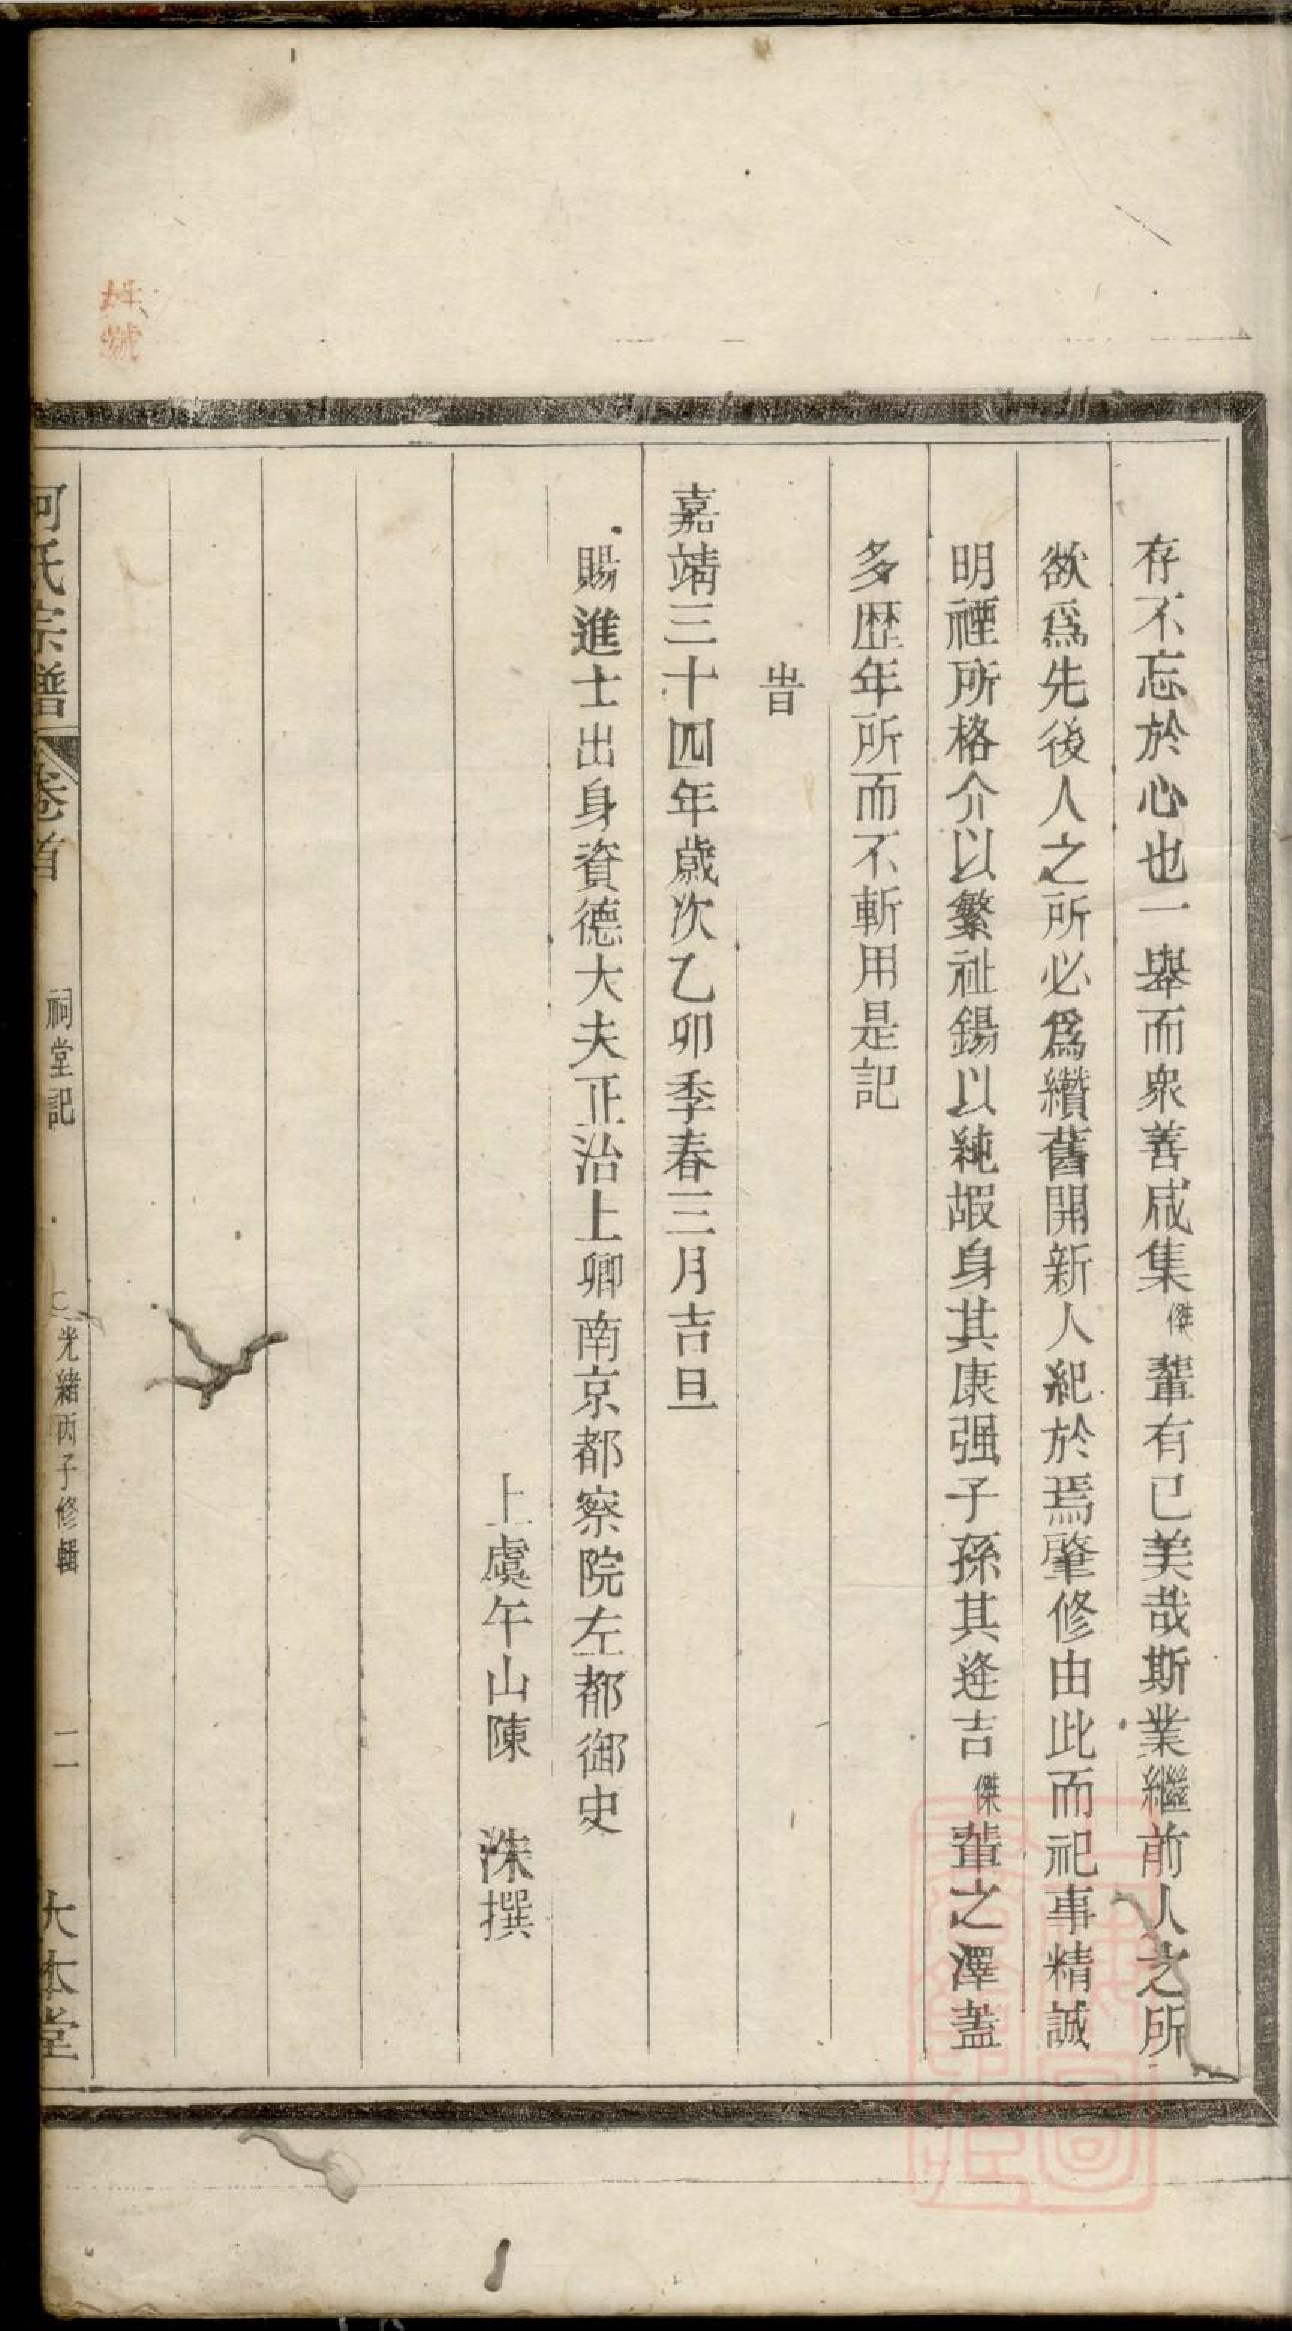 存不忘於心也一舉而衆善咸集傑輩有已美哉斯業繼前人之所
欲爲先後人之所必爲纘舊開新人紀於焉肇修由此而祀事精誠
明禋所格介以繁祉錫以純嘏身其康强子孫其逄吉傑輩之澤蓋
多歴年所而不斬用是記
旹
嘉靖三十四年歲次乙卯季春三月吉旦
賜進士出身資德大夫正治上卿南京都察院左都御史
上虞午山陳 洙撰
何氏宗譜 卷首 祠堂記 光緒丙子修輯 二 大本堂
姓號